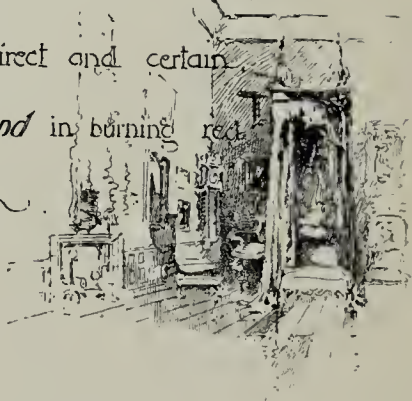 irect and certain
nd in burning rect